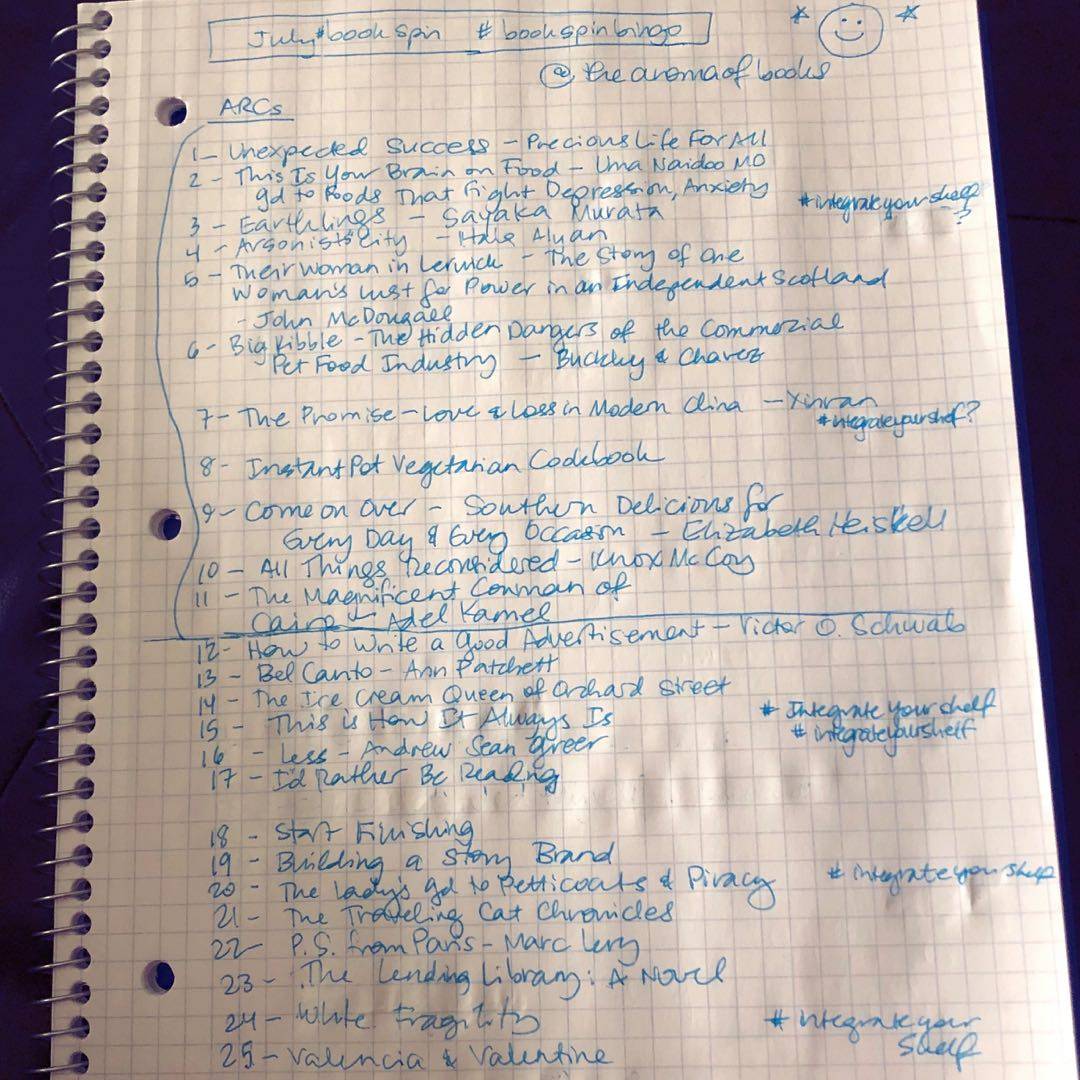 July #bookspin #bookspinbingo
@thearomaofbooks
ARCs
1 - Unexpected Success - Precious Life For All
2 - This Is Your Brain on Food - Uma Naidoo MD
gd to Foods That Fight Depression, Anxiety
#integrateyourshelf?
3 - Earthlings - Sayaka Murata
4 - Arsonists City - Hala Alyan
5 - Their Woman in Lerwick - The Story of One
Woman's Lust for Power in an Independent Scotland
- John McDougall
6 - Big Kibble - The Hidden Dangers of the Commercial
Pet Food Industry - Buckley & Chavez
7 - The Promise - Love & Loss in Modern China - Xinran
#integrateyourshelf?
8 - Instant Pot Vegetarian Cookbook
9 - Come on Over - Southern Delicious for
Every Day & Every Occasion - Elizabeth Heiskell
10 - All Things Reconsidered - Knox McCoy
11 - The Magnificent Conman of
Cairo - Adel Kamel
12 - How to Write a Good Advertisement - Victor O. Schwab
13 - Bel Canto - Ann Patchett
14 - The Ice Cream Queen of Orchard Street
15 - This is How It Always Is #Integrate your shelf
16 - Less - Andrew Sean Greer #integrateyourshelf
17 - I'd Rather Be Reading
18 - Start Finishing
19 - Building a Story Brand
20 - The Lady's gd to Petticoats & Piracy #integrateyourshelf
21 - The Traveling Cat Chronicles
22 - P.S. from Paris - Marc Levy
23 - The Lending Library: A Novel
24 - White Fragility #integrateyour
shelf
25 - Valencia & Valentine